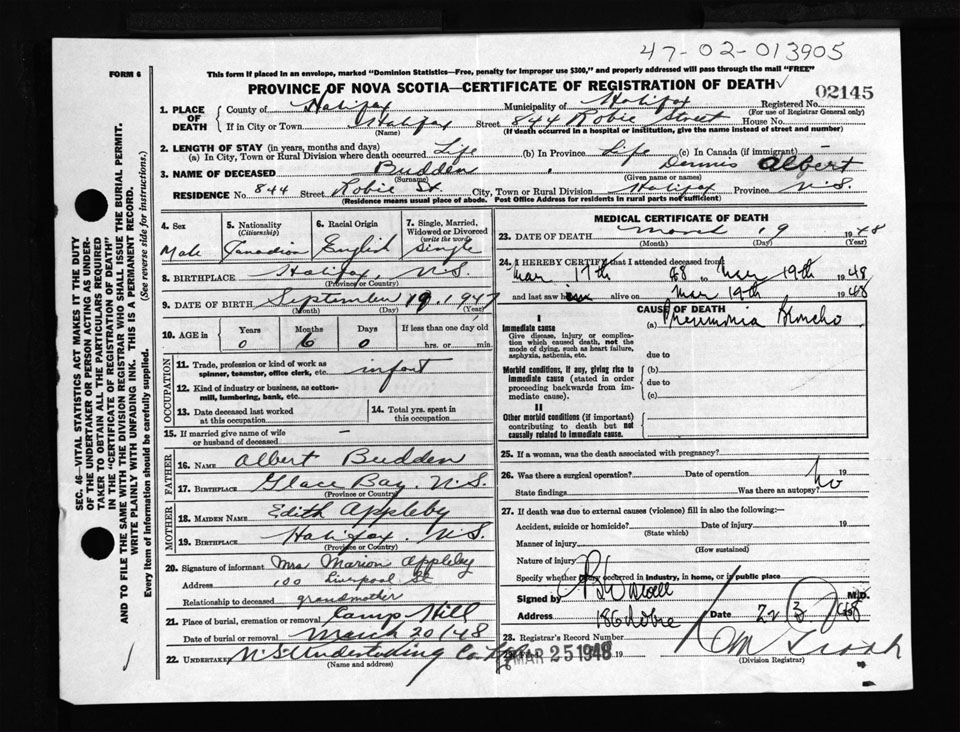 47-02-013905
FORM 6
This form if placed in an envelope, marked "Dominion Statistics—Free, penalty for improper use $300," and properly addressed will pass through the mail "FREE"
PROVINCE OF NOVA SCOTIA—CERTIFICATE OF REGISTRATION OF DEATH
02145
1. PLACE OF DEATH
County of Halifax Municipality of Halifax Registered No.
(For use of Registrar General only)
If in City or Town Halifax Street 844 Robie Street House No.
(Name) (If death occurred in a hospital or institution, give the name instead of street and number)
2. LENGTH OF STAY (in years, months and days)
(a) In City, Town or Rural Division where death occurred Life (b) In Province Life (c) In Canada (if immigrant)
3. NAME OF DECEASED Budden Dennis Albert
(Surname) (Given name or names)
RESIDENCE No. 844 Street Robie St City, Town or Rural Division Halifax Province N.S.
(Residence means usual place of abode. Post Office Address for residents in rural parts not sufficient)
4. Sex
Male
5. Nationality
(Citizenship)
Canadian
6. Racial Origin
English
7. Single, Married, Widowed or Divorced
(write the word)
Single
8. BIRTHPLACE Halifax, N.S.
(Province or Country)
9. DATE OF BIRTH September 19, 1947
(Month) (Day) (Year)
10. AGE in Years Months Days If less than one day old
0 6 0 hrs. or min.
OCCUPATION
11. Trade, profession or kind of work as spinner, teamster, office clerk, etc. infant
12. Kind of industry or business, as cotton-mill, lumbering, bank, etc.
13. Date deceased last worked at this occupation
14. Total yrs. spent in this occupation
15. If married give name of wife or husband of deceased –
FATHER
16. NAME Albert Budden
17. BIRTHPLACE Glace Bay, N.S.
(Province or Country)
MOTHER
18. MAIDEN NAME Edith Appleby
19. BIRTHPLACE Halifax, N.S.
(Province or Country)
20. Signature of informant Mrs Marion Appleby
Address 100 Liverpool St
Relationship to deceased grandmother
21. Place of burial, cremation or removal Camp Hill
Date of burial or removal March 20/48
22. UNDERTAKER N.S. Undertaking Co
(Name and address)
MEDICAL CERTIFICATE OF DEATH
23. DATE OF DEATH March 19 1948
(Month) (Day) (Year)
24. I HEREBY CERTIFY that I attended deceased from
Mar 17th 48 to Mar 19th 1948
and last saw him alive on Mar 19th 1948
CAUSE OF DEATH
I
Immediate cause
Give disease, injury or complication which caused death, not the mode of dying, such as heart failure, asphyxia, asthenia, etc.
(a) Pneumonia Broncho
due to
Morbid conditions, if any, giving rise to immediate cause (stated in order proceeding backwards from immediate cause)
(b)
due to
(c)
II
Other morbid conditions (if important) contributing to death but not causally related to immediate cause.
25. If a woman, was the death associated with pregnancy?
26. Was there a surgical operation? Date of operation 19
State findings Was there an autopsy? No
27. If death was due to external causes (violence) fill in also the following:—
Accident, suicide or homicide? Date of injury 19
(State which)
Manner of injury
(How sustained)
Nature of injury
Specify whether injury occurred in industry, in home, or in public place
Signed by M.D.
Address 186 Date 22 3 1948
28. Registrar's Record Number
MAR 25 1948 19
(Division Registrar)
SEC. 46—VITAL STATISTICS ACT MAKES IT THE DUTY OF THE UNDERTAKER OR PERSON ACTING AS UNDERTAKER TO OBTAIN ALL THE PARTICULARS REQUIRED IN THE "CERTIFICATE OF REGISTRATION OF DEATH"
AND TO FILE THE SAME WITH THE DIVISION REGISTRAR WHO SHALL ISSUE THE BURIAL PERMIT.
WRITE PLAINLY WITH UNFADING INK. THIS IS A PERMANENT RECORD.
Every item of information should be carefully supplied. (See reverse side for instructions.)